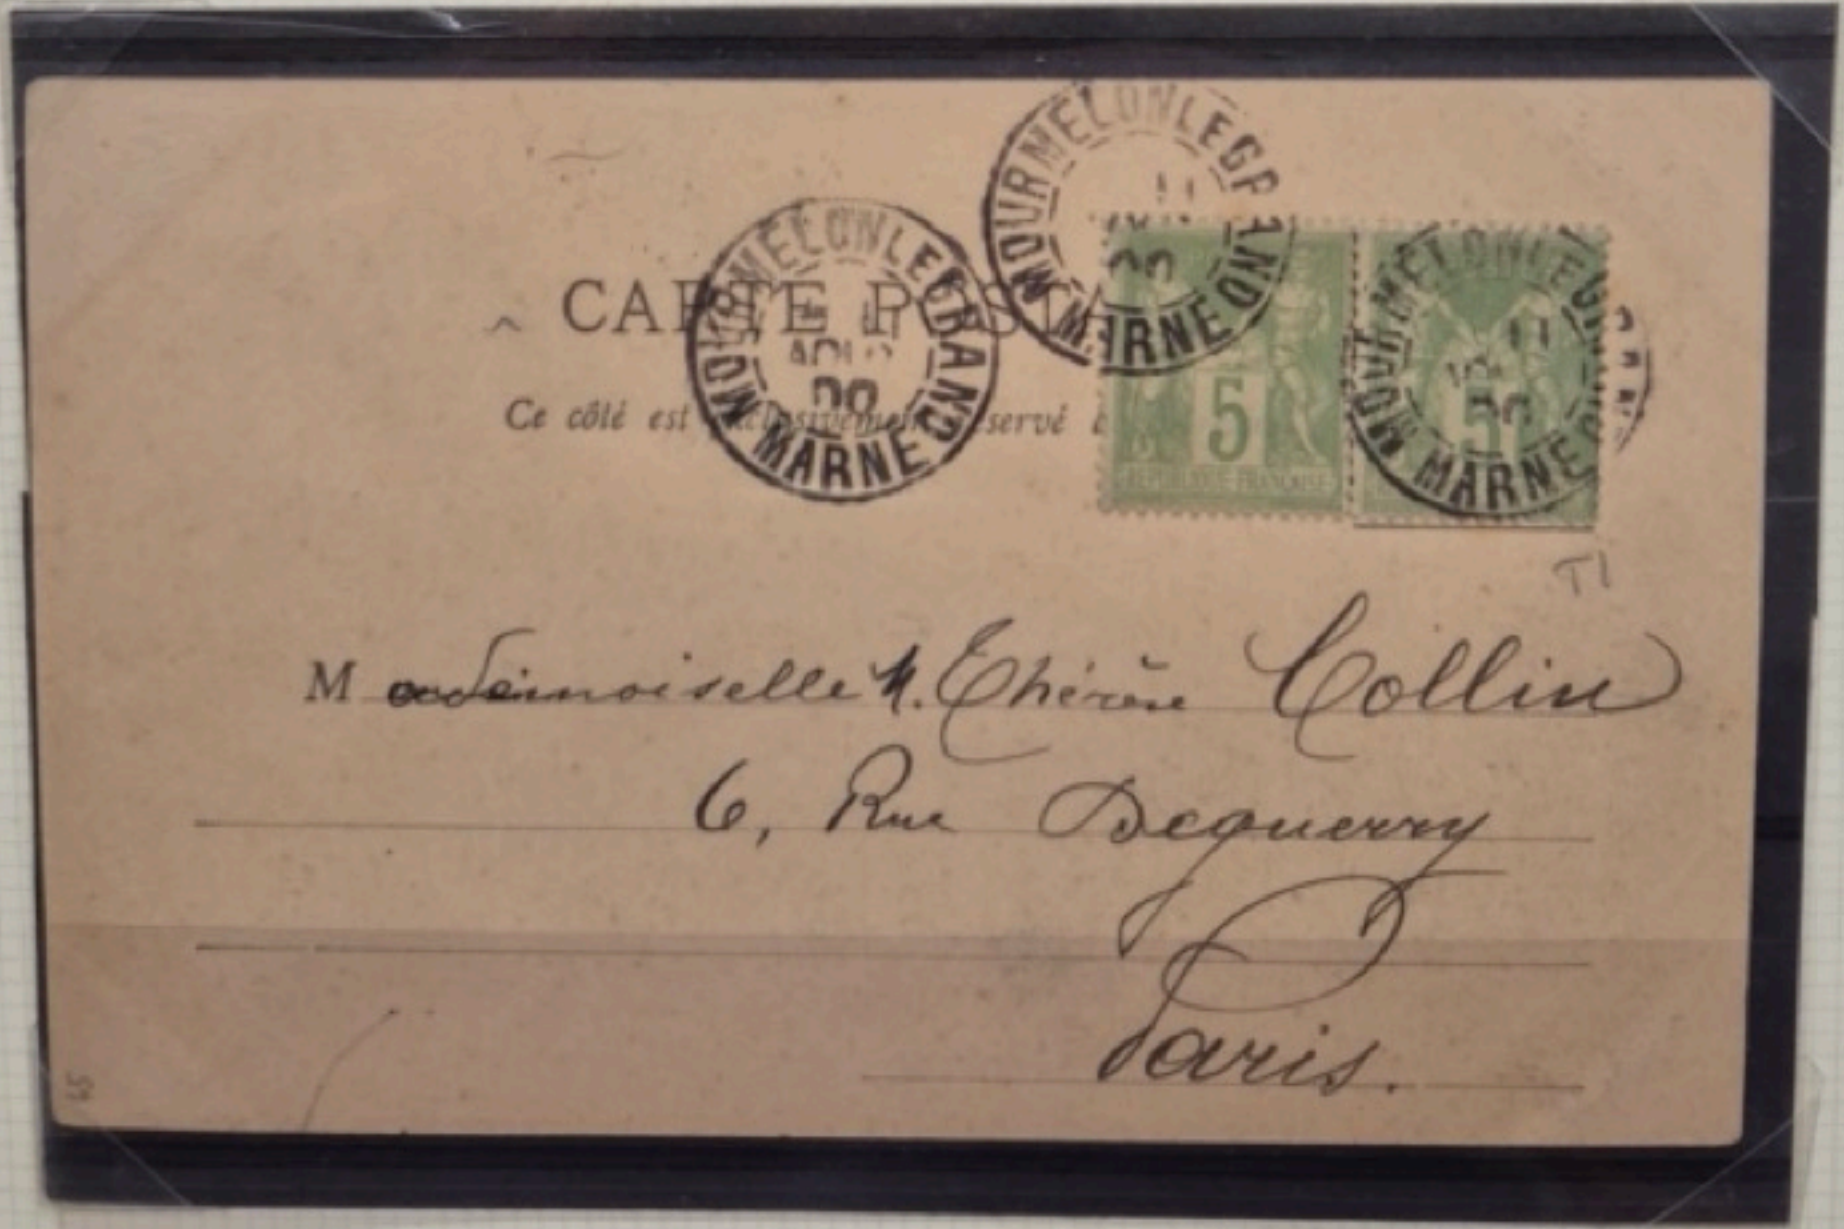 MOURMELON LE GRAND
11
AOUT
00
MARNE
MOURMELON LE GRAND
11
00
MARNE
MOURMELON LE GRAND
11
00
MARNE
CARTE POSTA
Ce côté est exclusivement réservé à
5
REPUBLIQUE FRANÇAISE
5
T1
Mademoiselle M. Thérèse Collin
6, Rue Deguerry
Paris.
65